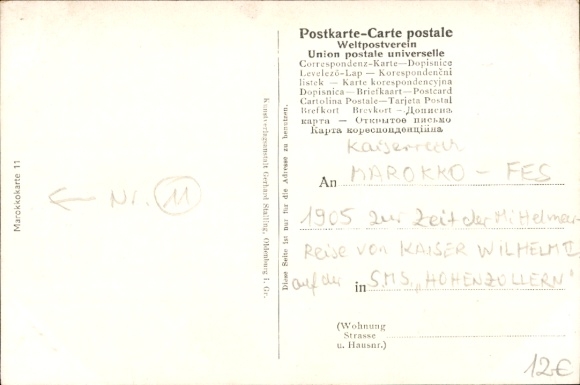 Marokkokarte 11
← Nr. 11
Kunstverlagsanstalt Gerhard Stalling, Oldenburg i. Gr.
Diese Seite ist nur für die Adresse zu benutzen.
Postkarte-Carte postale
Weltpostverein
Union postale universelle
Correspondenz-Karte—Dopisnice
Levelező-Lap — Korespondenční
listek — Karte korespondencyjna
Dopisnica — Briefkaart—Postcard
Cartolina Postale—Tarjeta Postal
Brefkort Brevkort — Дописна
карта — Открытое письмо
Карта кореспонденційна
Kaiserreich
An MAROKKO – FES
1905 zur Zeit der Mittelmeer-
Reise von KAISER WILHELM II
auf der in S.M.S. „HOHENZOLLERN"
(Wohnung
Strasse
u. Hausnr.)
12€